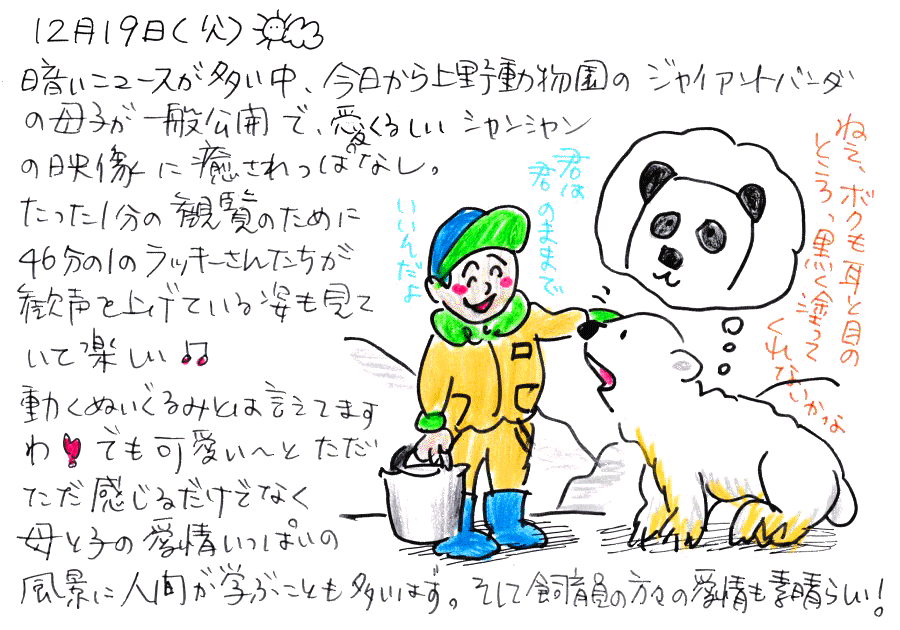 12月19日(火)
暗いニュースが多い中、今日から上野動物園のジャイアントパンダ
の母子が一般公開で、愛くるしいシャンシャン
の映像に癒されっぱなし。
たった1分の観覧のために
46分の1のラッキーさんたちが
歓声を上げている姿も見て
いて楽しい♫
動くぬいぐるみとは言えてます
わ❣でも可愛い〜とただ
ただ感じるだけでなく
母と子の愛情いっぱいの
風景に人間が学ぶことも多いはず。そして飼育員の方々の愛情も素晴らしい!
ねえ、ボクも耳と目の
ところ、黒く塗って
くれないかな
君は
君のままで
いいんだよ